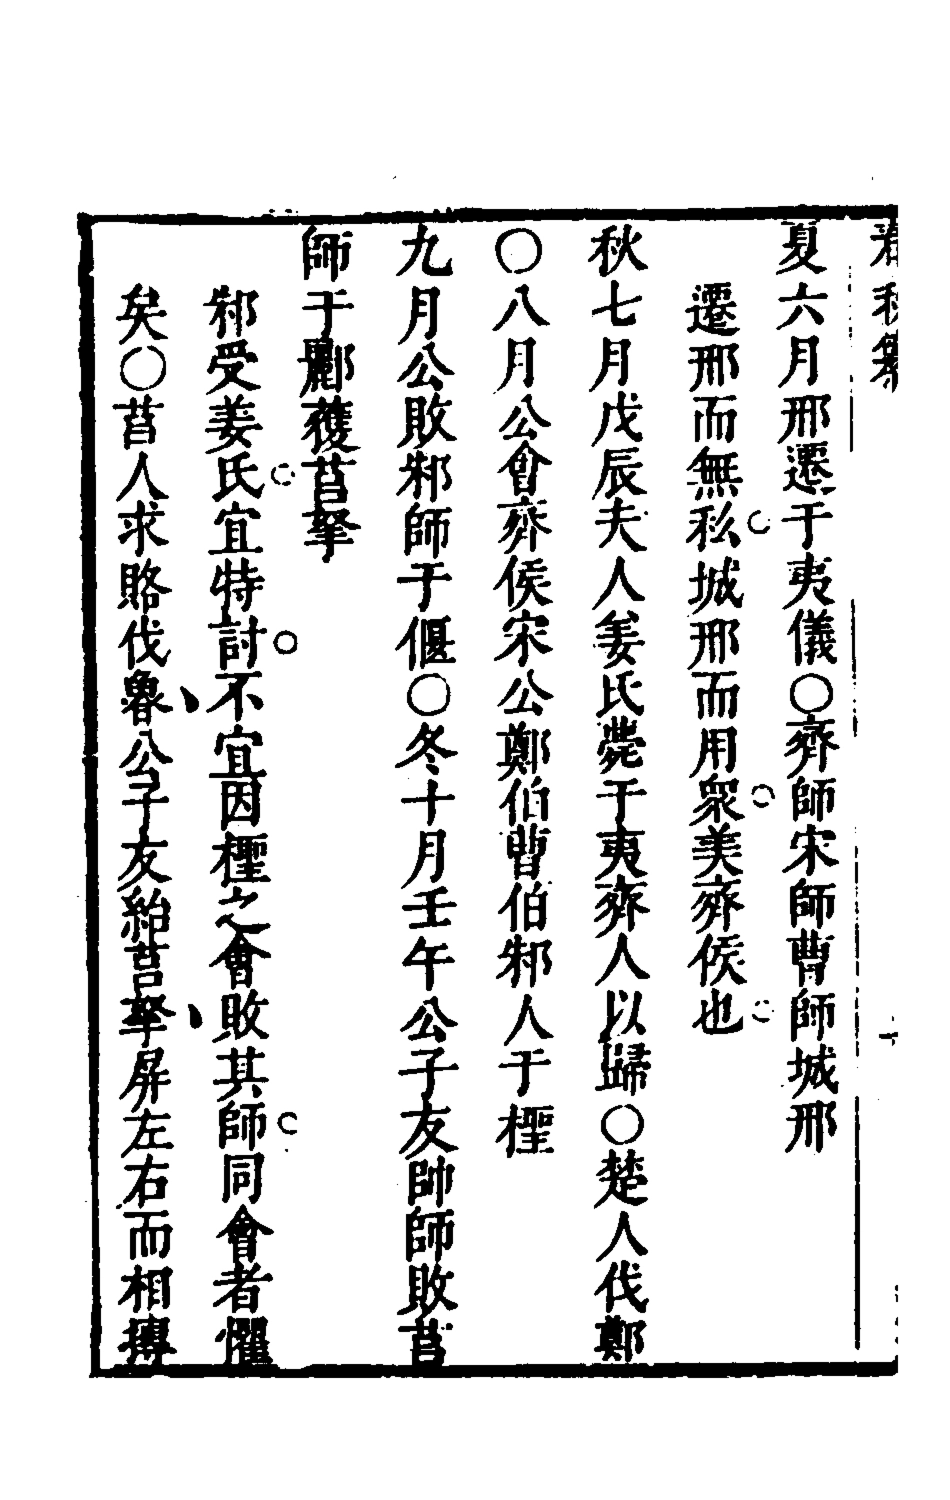 夏六月邢遷于夷儀〇齊師宋師曹師城邢
遷邢而無私城邢而用衆美齊侯也
秋七月戊辰夫人姜氏薨于夷齊人以歸〇楚人伐鄭
〇八月公會齊侯宋公鄭伯曹伯邾人于檉
九月公敗邾師于偃〇冬十月壬午公子友帥師敗莒
師于酈獲莒拏
邾受姜氏宜特討不宜因檉之會敗其師同會者懼
矣〇莒人求賂伐魯公子友紿莒拏屏左右而相搏